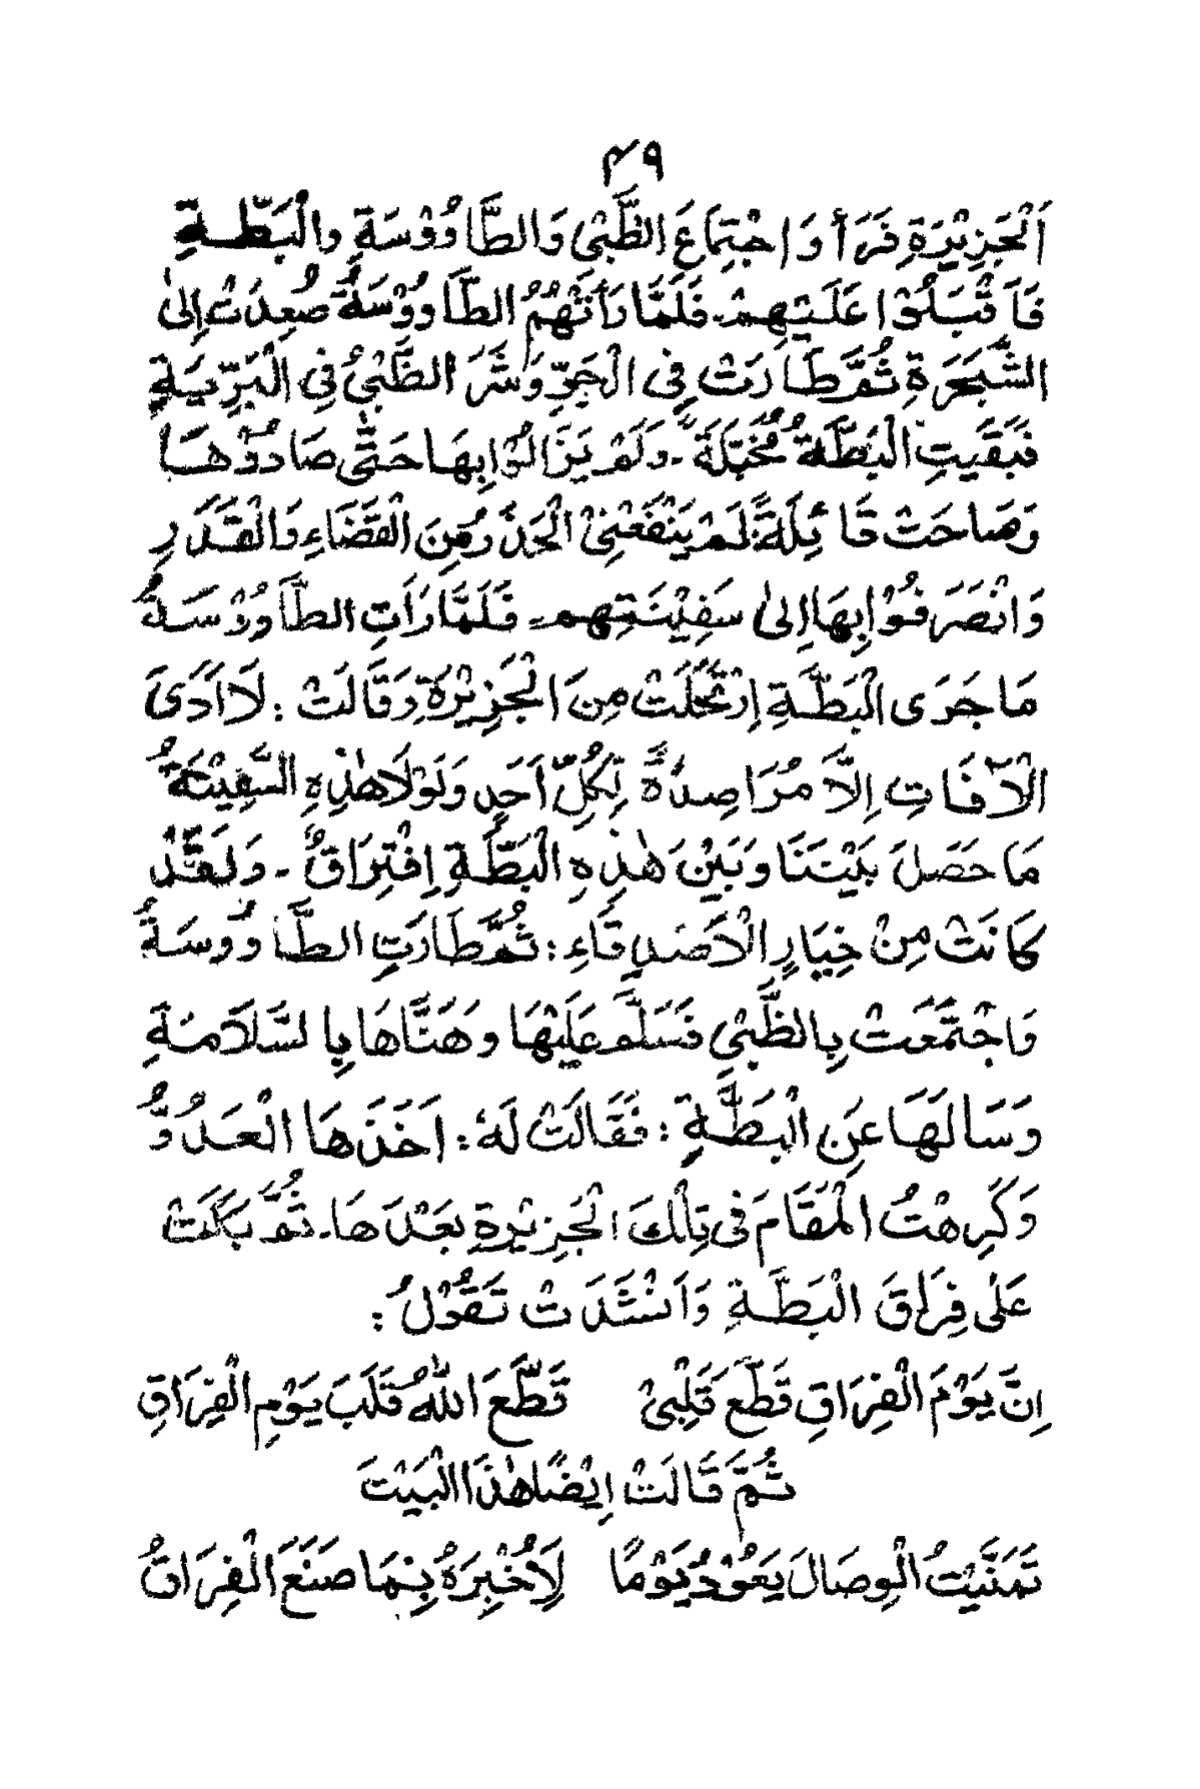 ۴۹
اَلْجَزِيْرَةِ فَرَأَ وَاجْتِمَاعَ الظَّبْيِ وَالطَّاوُوْسَةِ وَالْبَطَّةِ
فَاَقْبَلُوْا عَلَيْهِمْ۔ فَلَمَّا رَاَتْهُمُ الطَّاوُوْسَةُ صُعِدَتْ اِلىٰ
الشَّجَرَةِ ثُمَّ طَارَتْ فِى الْجَوِّ وَشَرَ الظَّبْىُ فِى الْبَرِّيَةِ
فَبَقَيَتِ الْبَطَّةُ مُخَبَّلَةً۔ وَلَمْ يَزَالُوْا بِهَا حَتّٰى صَادُوْهَا
وَصَاحَتْ قَائِلَةً لَمْ يَنْفَعْنِىْ الْحَذَرُ مِنَ الْقَضَاءِ وَالْقَدَرِ
وَانْصَرَفُوْا بِهَا اِلىٰ سَفِيْنَتِهِمْ۔ فَلَمَّا رَاَتِ الطَّاوُوْسَةُ
مَا جَرَى الْبَطَّةِ اِرْتَحَلَتْ مِنَ الْجَزِيْرَةِ وَقَالَتْ : لَا اَرَى
الْاٰفَاتِ اِلَّا مُرَاصِدَةً لِكُلِّ اَحَدٍ وَلَوْلَا هٰذِهِ السَّفِيْنَةُ
مَا حَصَلَ بَيْنَنَا وَبَيْنَ هٰذِهِ الْبَطَّةِ اِفْتِرَاقٌ ۔ وَلَقَدْ
كَانَتْ مِنْ خِيَارِ الْاَصْدِقَاءِ : ثُمَّ طَارَتِ الطَّاوُوسَةُ
وَاجْتَمَعَتْ بِالظَّبْيِ فَسَلَّمَ عَلَيْهَا وَهَنَّاهَا بِالسَّلَامَةِ
وَسَالَهَا عَنِ الْبَطَّةِ : فَقَالَتْ لَهُ : اَخَذَهَا الْعَدُوُّ
وَكَرِهْتُ الْمَقَامَ فِى تِلْكَ الْجَزِيْرَةِ بَعْدَهَا۔ ثُمَّ بَكَتْ
عَلىٰ فِرَاقَ الْبَطَّةِ وَاَنْشَدَتْ تَقُوْلُ :
اِنَّ يَوْمَ الْفِرَاقِ قَطَّعَ قَلْبِىْ قَطَّعَ اللّٰهُ قَلْبَ يَوْمِ الْفِرَاقِ
ثُمَّ قَالَتْ اِيْضًا هٰذَا الْبَيْتَ
تَمَنَّيْتُ الْوِصَالَ يَعُوْدُ يَوْمًا لِاُخْبِرَهُ بِمَا صَنَعَ الْفِرَاقُ